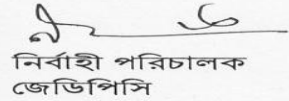 নির্বাহী পরিচালক
জেডিপিসি